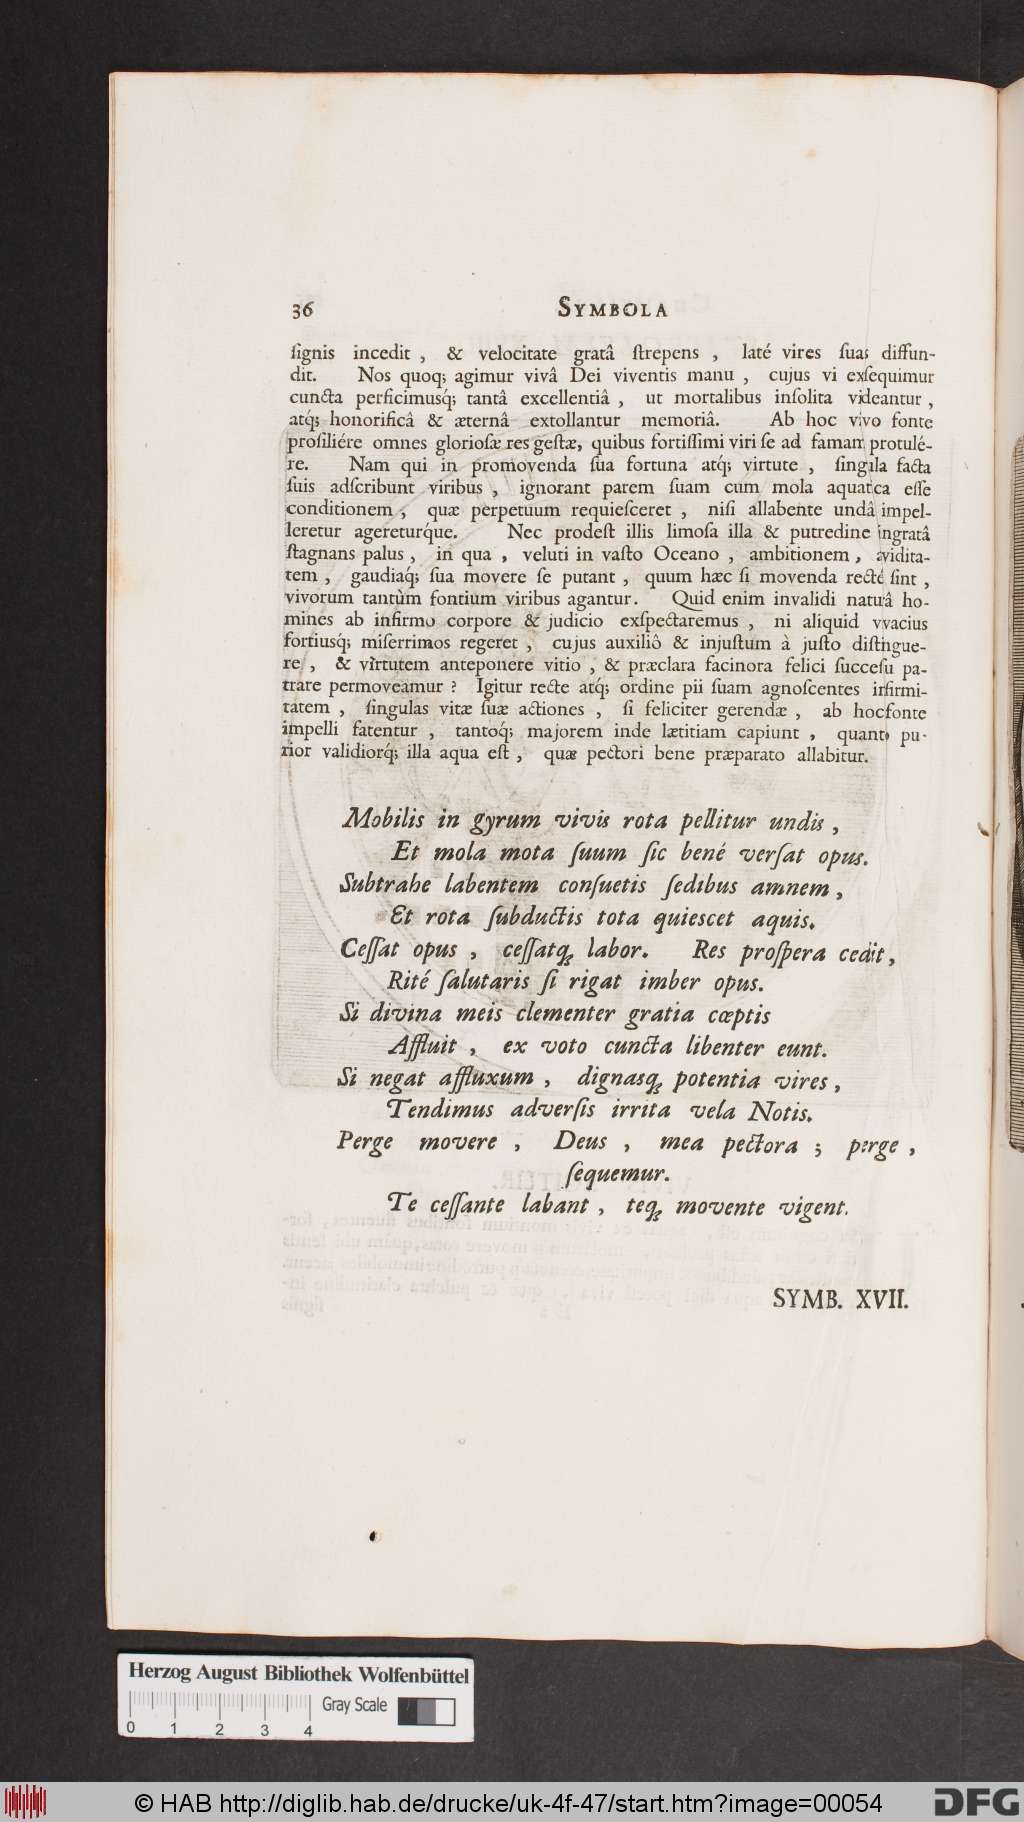 36 SYMBOLA
ſignis incedit , & velocitate gratâ ſtrepens , laté vires ſuas diffun-
dit. Nos quoq; agimur vivâ Dei viventis manu , cujus vi exſequimur
cuncta perficimusq́; tantâ excellentiâ , ut mortalibus inſolita videantur ,
atq́; honorificâ & æternâ extollantur memoriâ. Ab hoc vivo fonte
proſiliére omnes glorioſæ res geſtæ, quibus fortiſſimi viri ſe ad famam protulé-
re. Nam qui in promovenda ſua fortuna atq́; virtute , ſingula facta
ſuis adſcribunt viribus , ignorant parem ſuam cum mola aquatica eſſe
conditionem , quæ perpetuum requieſceret , niſi allabente undâ impel-
leretur agereturq́ue. Nec prodeſt illis limoſa illa & putredine ingratâ
ſtagnans palus , in qua , veluti in vaſto Oceano , ambitionem , avidita-
tem , gaudiaq́; ſua movere ſe putant , quum hæc ſi movenda recté ſint ,
vivorum tantùm fontium viribus agantur. Quid enim invalidi naturâ ho-
mines ab infirmo corpore & judicio exſpectaremus , ni aliquid vivacius
fortiusq́; miſerrimos regeret , cujus auxiliô & injuſtum à juſto diſtingue-
re , & virtutem anteponere vitio , & præclara facinora felici ſucceſu pa-
trare permoveamur ? Igitur recte atq́; ordine pii ſuam agnoſcentes infirmi-
tatem , ſingulas vitæ ſuæ actiones , ſi feliciter gerendæ , ab hoc fonte
impelli fatentur , tantoq́; majorem inde lætitiam capiunt , quanto pu-
rior validiorq́; illa aqua eſt , quæ pectori bene præparato allabitur.
Mobilis in gyrum vivis rota pellitur undis ,
Et mola mota ſuum ſic bené verſat opus.
Subtrahe labentem conſuetis ſedibus amnem ,
Et rota ſubductis tota quiescet aquis.
Ceſſat opus , ceſſatq; labor. Res proſpera cedit ,
Rité ſalutaris ſi rigat imber opus.
Si divina meis clementer gratia cœptis
Affluit , ex voto cuncta libenter eunt.
Si negat affluxum , dignasq; potentia vires ,
Tendimus adverſis irrita vela Notis.
Perge movere , Deus , mea pectora ; perge ,
ſequemur.
Te ceſſante labant , teq; movente vigent.
SYMB. XVII.
Herzog August Bibliothek Wolfenbüttel
Gray Scale
0 1 2 3 4
© HAB http://diglib.hab.de/drucke/uk-4f-47/start.htm?image=00054
DFG